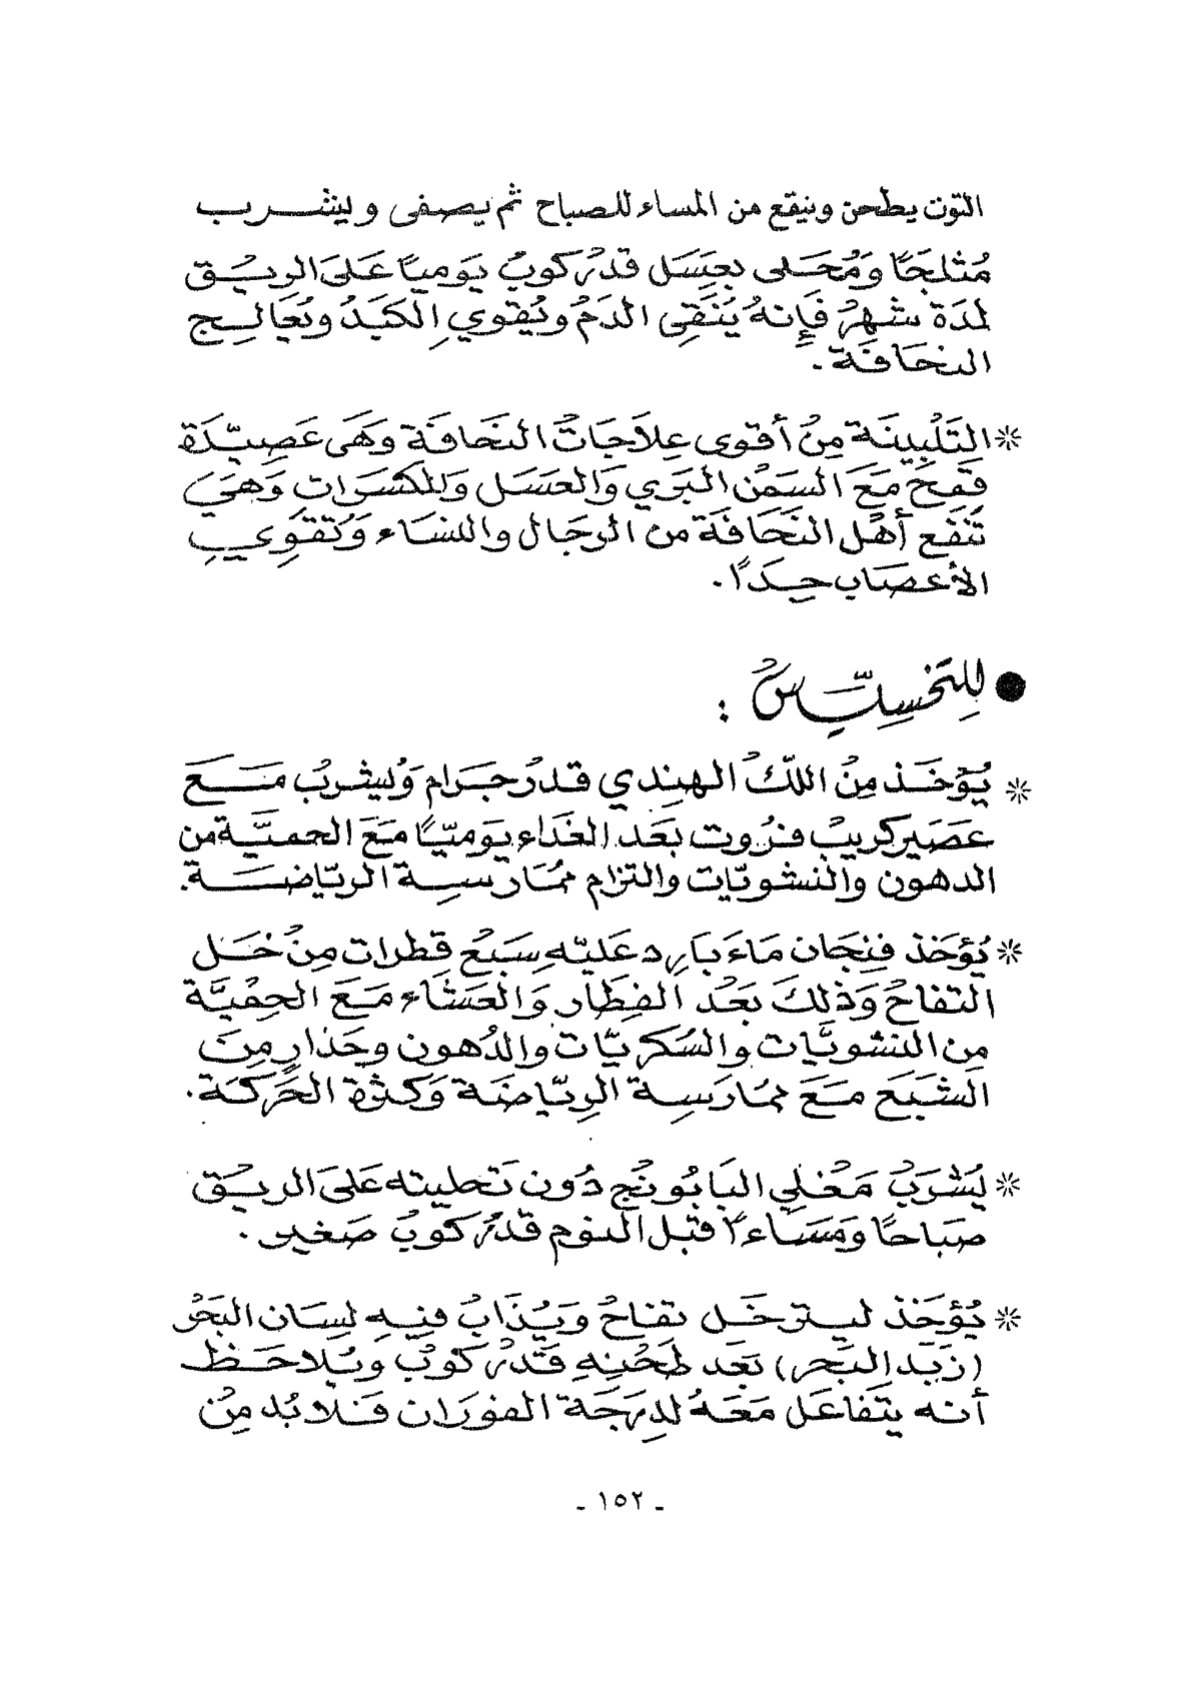 التوت يطحن وينقع من المساء للصباح ثم يصفى ويشرب
مُثلجًا وَمُحَلى بعَسَل قدرُ كوبُ يَوميًا عَلىَ الريُق
لمدَة شهرُ فَإِنهُ يُنَقِى الدَمُ ويُقوي الكبَدُ ويُعَالج
النحَافَة .
* التَلْبينَة مِنُ أقوى عِلاَجَاتُ النحَافَة وَهَى عَصِيّدَة
قَمِحُ مَعَ السَمُن البَري وَالعَسَل وَالمكسَرات وَهيَ
تَنفَع أهُل النَحَافَة من الرجَال والنسَاء وَتقوِي
الأعصَاب جِدًا .
● لِلتخسِيّسُ :
* يُؤخَذ مِنُ اللّكُ الهِندي قدرُ جرَام وَليشربُ مَعَ
عَصَير كريبُ فرُوت بعَد الغَدَاء يَوميّاً مَعَ الحميَّة من
الدهون والنشويّات والتزام ممُارسِة الريّاضَة .
* يُؤخَذ فنِجَان مَاءَ بَارِد عَليّهِ سَبَعُ قطرات مِنُ خَل
التفاحُ وَذلكَ بَعُد الفِطَار وَالعَشَاء مَعَ الحِمُيَّة
مِن النشويَّات والسُكريّات والدُهون وحَذارِ مِنَ
الشَبَع مَعَ ممُارَسِة الرِيّاضَة وَكثرة الحَرَكَة .
* يُشرَبُ مَغُلي البَابُونُج دُون تَحليته عَلىَ الريُق
صَبَاحًا وَمَسَاءً قبُل النوم قدرُ كوبُ صَغير .
* يُؤخَذ ليتر خَل تفاحُ وَيُذَابُ فيهِ لسَان البَحُر
(زَبَد البَحر) بَعَد طَحُنهِ قَدرُ كوُبُ ويُلاحَظ
أنه يتَفاعَل مَعَهُ لدِرَجَة الفورَان فَلا بُد مِنُ
- ١٥٢ -